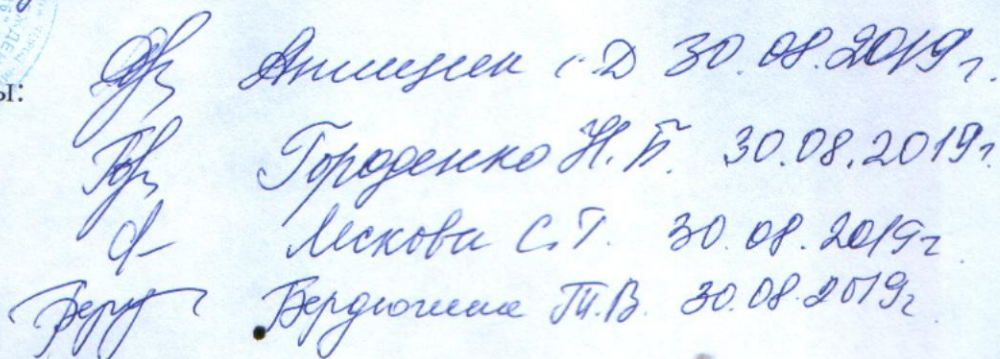 ы:
Анищик С.Д 30.08.2019г.
Городенко Н.Б. 30.08.2019г.
Лескова С.Г. 30.08.2019г
Бердюгина Т.В. 30.08.2019г.